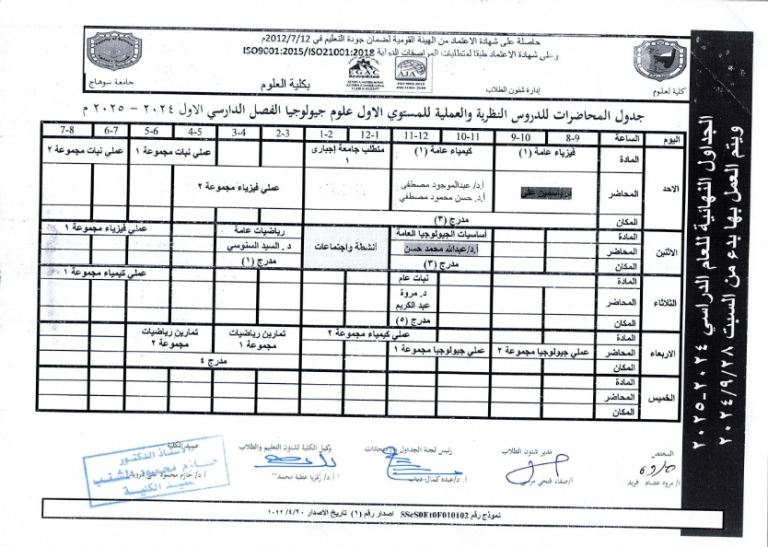 حاصلة على شهادة الاعتماد من الهيئة القومية لضمان جودة التعليم في 2012/7/12م
وعلى شهادة الاعتماد طبقا لمتطلبات المواصفات الدولية ISO9001:2015/ISO21001:2018
EGAC
AJA
جامعة سوهاج
بكلية العلوم
إدارة شئون الطلاب
كلية العلوم
جدول المحاضرات للدروس النظرية والعملية للمستوي الاول علوم جيولوجيا الفصل الدارسي الاول ٢٠٢٤ - ٢٠٢٥ م
اليوم الساعة 8-9 9-10 10-11 11-12 12-1 1-2 2-3 3-4 4-5 5-6 6-7 7-8
الاحد
المادة فيزياء عامة (١) كيمياء عامة (١) متطلب جامعة إجبارى ١ عملي نبات مجموعة ١ عملي نبات مجموعة ٢
المحاضر أ.د/ عبدالموجود مصطفى عملي فيزياء مجموعة ٢
أ.د. حسن محمود مصطفي
المكان مدرج (٣)
الاثنين
المادة أساسيات الجيولوجيا العامة رياضيات عامة عملي فيزياء مجموعة ١
المحاضر أ.د/عبدالله محمد حسن أنشطة واجتماعات د. السيد السنوسي
المكان مدرج (٣) مدرج (١)
الثلاثاء
المادة نبات عام عملي كيمياء مجموعة ١
المحاضر د. مروة
عبد الكريم
المكان مدرج (٥)
الاربعاء
المادة عملي كيمياء مجموعة ٢ تمارين رياضيات مجموعة ١ تمارين رياضيات مجموعة ٢
المحاضر عملي جيولوجيا مجموعة ٢ عملي جيولوجيا مجموعة ١
المكان مدرج ٤
الخميس
المادة
المحاضر
المكان
الجداول النهائية للعام الدراسي ٢٠٢٤-٢٠٢٥
ويتم العمل بها بدء من السبت ٢٠٢٤/٩/٢٨
المختص مدير شئون الطلاب رئيس لجنة الجداول وكيل الكلية لشئون التعليم والطلاب
أ/ مروة عصام فريد أ/صفاء فتحي أ.د/عبده كمال دياب أ.د/ زكريا عطية محمد
الأستاذ الدكتور
عميد الكلية
نموذج رقم SScS0Et0F010102 اصدار رقم (١) تاريخ الاصدار ٢٠٢٢/٤/٢٠